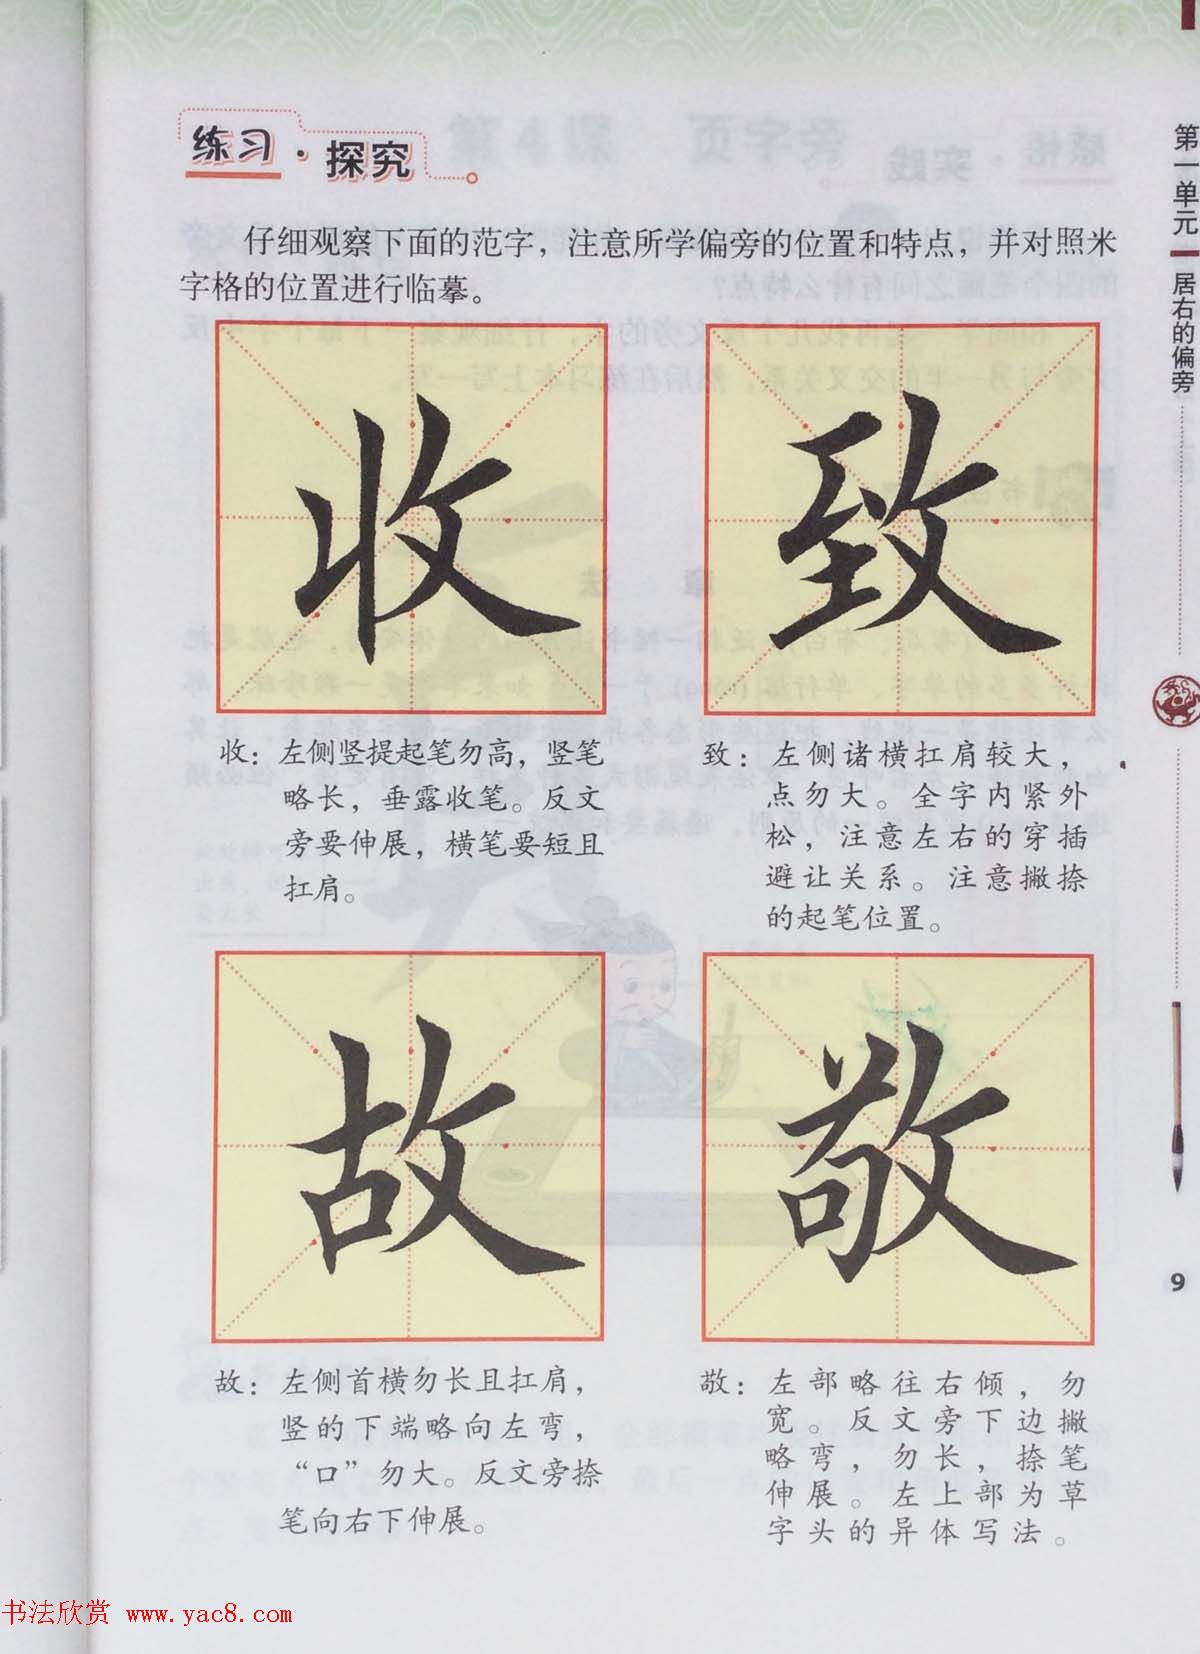 练习·探究
仔细观察下面的范字，注意所学偏旁的位置和特点，并对照米
字格的位置进行临摹。
收
致
收：左侧竖提起笔勿高，竖笔
略长，垂露收笔。反文
旁要伸展，横笔要短且
扛肩。
致：左侧诸横扛肩较大，
点勿大。全字内紧外
松，注意左右的穿插
避让关系。注意撇捺
的起笔位置。
故
敬
故：左侧首横勿长且扛肩，
竖的下端略向左弯，
“口”勿大。反文旁捺
笔向右下伸展。
敬：左部略往右倾，勿
宽。反文旁下边撇
略弯，勿长，捺笔
伸展。左上部为草
字头的异体写法。
第一单元
居右的偏旁
9
书法欣赏 www.yac8.com